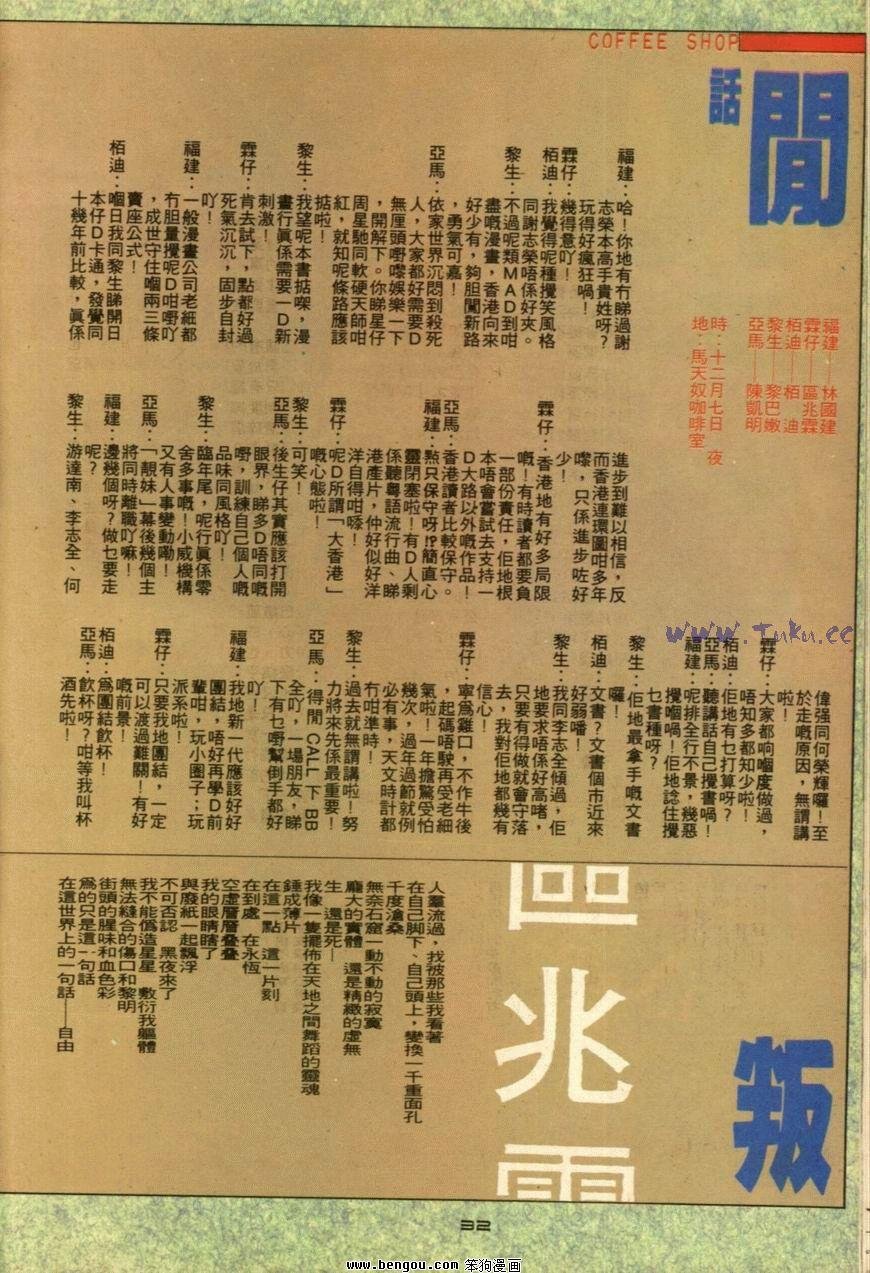 COFFEE SHOP
閒
話
福建——林國建
霖仔——區兆霖
栢迪——栢　迪
黎生——黎巴嫩
亞馬——陳凱明
時：十二月七日　夜
地：馬天奴咖啡室
福建：哈！你地有冇睇過謝
志榮本高手貴姓呀？
玩得好瘋狂喎！
霖仔：幾得意吖！
栢迪：我覺得呢種攪笑風格
同謝志榮唔係好夾。
黎生：不過呢類MAD到咁
盡嘅漫畫，香港向來
好少有，夠胆闖新路
，勇氣可嘉！
亞馬：依家世界沉悶到殺死
人，大家都好需要D
無厘頭嘢嚟娛樂一下
，開解下。你睇星仔
周星馳同軟硬天師咁
紅，就知呢條路應該
掂啦！
黎生：我望呢本書掂㗎，漫
畫行眞係需要一D新
刺激！
霖仔：肯去試下，點都好過
死氣沉沉，固步自封
吖！
福建：一般漫畫公司老細都
冇胆量攪呢D咁嘢吖
，成世守住嗰兩三條
賣座公式！
栢迪：嗰日我同黎生睇開日
本仔D卡通，發覺同
十幾年前比較，眞係
進步到難以相信，反
而香港連環圖咁多年
嚟，只係進步咗好
少！
霖仔：香港地有好多局限
嘅！有時讀者都要負
一部份責任，佢地根
本唔會嘗試去支持一
D大路以外嘅作品！
亞馬：香港讀者比較保守。
福建：㷫只保守呀!?簡直心
靈閉塞啦！有D人剩
係聽粵語流行曲、睇
港產片，仲好似好洋
洋自得咁㗎！
霖仔：呢D所謂「大香港」
嘅心態啦！
黎生：可笑！
亞馬：後生仔其實應該打開
眼界，睇多D唔同嘅
嘢，訓練自己個人嘅
品味同風格吖！
黎生：臨年尾，呢行眞係零
舍多事嘅！小威機構
又有人事變動嘞！
亞馬：「靚妹」幕後幾個主
將同時離職吖嘛！
福建：邊幾個呀？做乜要走
呢？
黎生：游達南、李志全、何
偉强同何榮輝囉！至
於走嘅原因，無謂講
啦！
霖仔：大家都响嗰度做過，
唔知多都知少啦！
栢迪：佢地有乜打算呀？
亞馬：聽講話自己攪書喎！
福建：呢排全行不景，幾惡
攪嗰喎！佢地諗住攪
乜書種呀？
黎生：佢地最拿手嘅文書
囉！
栢迪：文書？文書個市近來
好弱噃！
黎生：我同李志全傾過，佢
地要求唔係好高啫，
只要有得做就會守落
去，我對佢地都幾有
信心！
霖仔：寧爲雞口，不作牛後
，起碼唔駛再受老細
氣啦！一年擔驚受怕
幾次，過年過節就例
必有事，天文時計都
冇咁準時！
黎生：過去就無謂講啦！努
力將來先係最重要！
亞馬：得閒 CALL 下 BB
全吖，一場朋友，睇
下有乜嘢幫倒手都好
吖！
福建：我地新一代應該好好
團結，唔好再學D前
輩咁，玩小圈子；玩
派系啦！
霖仔：只要我地團結，一定
可以渡過難關！有好
嘅前景！
栢迪：爲團結飲杯！
亞馬：飲杯呀？咁等我叫杯
酒先啦！
叛
區兆霖
人羣流過，找被那些我看著
在自己脚下、自己頭上，變換一千重面孔
千度滄桑
無奈石窟一動不動的寂寞
龐大的實體　還是精緻的虛無
生　還是死—
我像一隻擺佈在天地之間舞蹈的靈魂
錘成薄片
在這一點　這一片刻
在到處　在永恆
空虛層層叠叠
我的眼睛瞎了
與廢紙一起飄浮
不可否認　黑夜來了
我不能僞造星星　敷衍我軀體
無法縫合的傷口和黎明
街頭的腥味和血色彩
爲的只是這一句話
在這世界上的一句話——自由
32
www.Tuku.cc
www.bengou.com 笨狗漫画